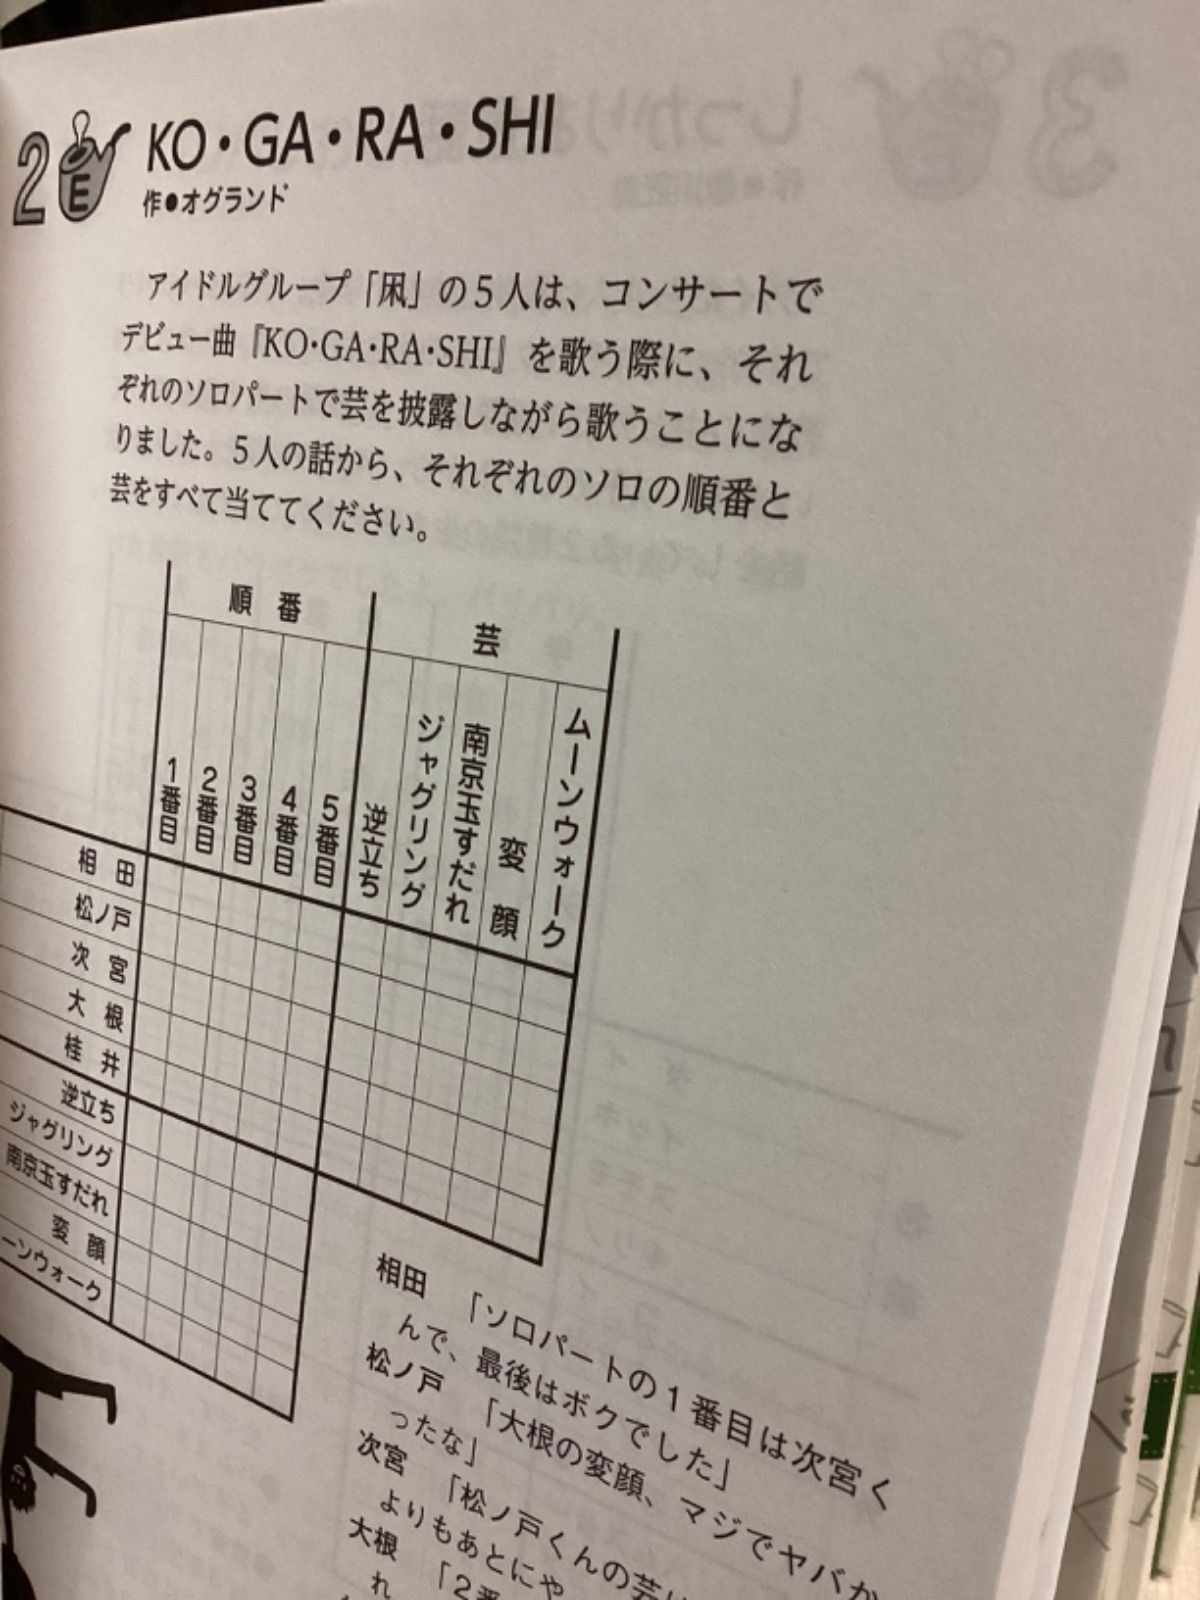 2 E KO・GA・RA・SHI
作●オグランド
アイドルグループ「凩」の5人は、コンサートで
デビュー曲『KO・GA・RA・SHI』を歌う際に、それ
ぞれのソロパートで芸を披露しながら歌うことにな
りました。5人の話から、それぞれのソロの順番と
芸をすべて当ててください。
順番
芸
1番目
2番目
3番目
4番目
5番目
逆立ち
ジャグリング
南京玉すだれ
変顔
ムーンウォーク
相田
松ノ戸
次宮
大根
桂井
逆立ち
ジャグリング
南京玉すだれ
変顔
ーンウォーク
相田 「ソロパートの1番目は次宮く
んで、最後はボクでした」
松ノ戸 「大根の変顔、マジでヤバか
ったな」
次宮 「松ノ戸くんの芸は
よりもあとにや
大根 「2番
れ